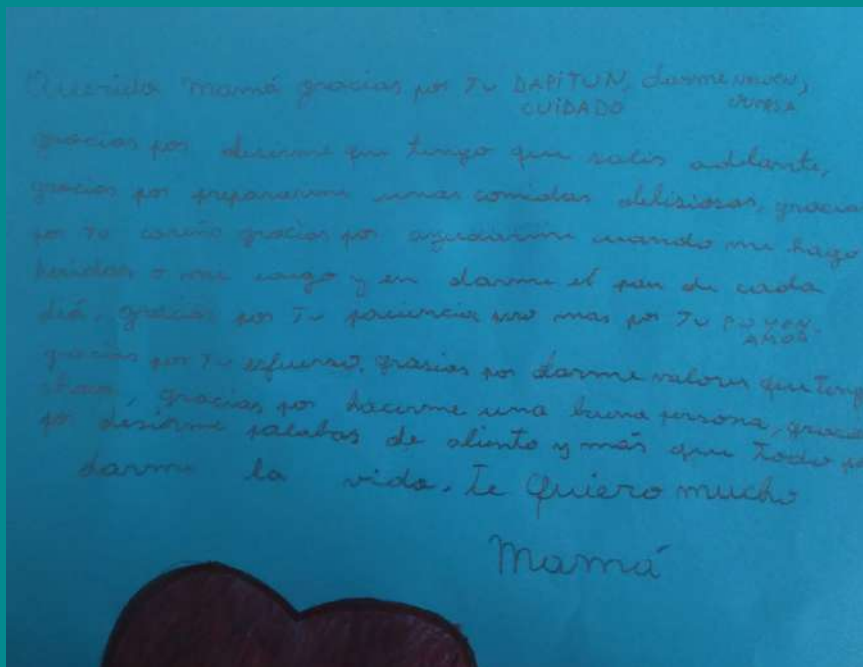 Querida mamá gracias por Tu DAPiTUN, darme NEWEN,
CUiDADO FUERSA
gracias por decirme que tengo que salir adelante,
gracias por prepararme unas comidas delisiosas, gracias
por tu cariño gracias por ayudarme cuando me hago
heridas o me caigo y en darme el pan de cada
diá, gracias por Tu paciencia mas por Tu
AMOR
gracias por Tu esfuerso, grasias por darme valores que teng
gracias por hacerme una buena persona, gracia
por desirme palabas de aliento y más que todo po
darme la vida. te Quiero mucho
Mamá